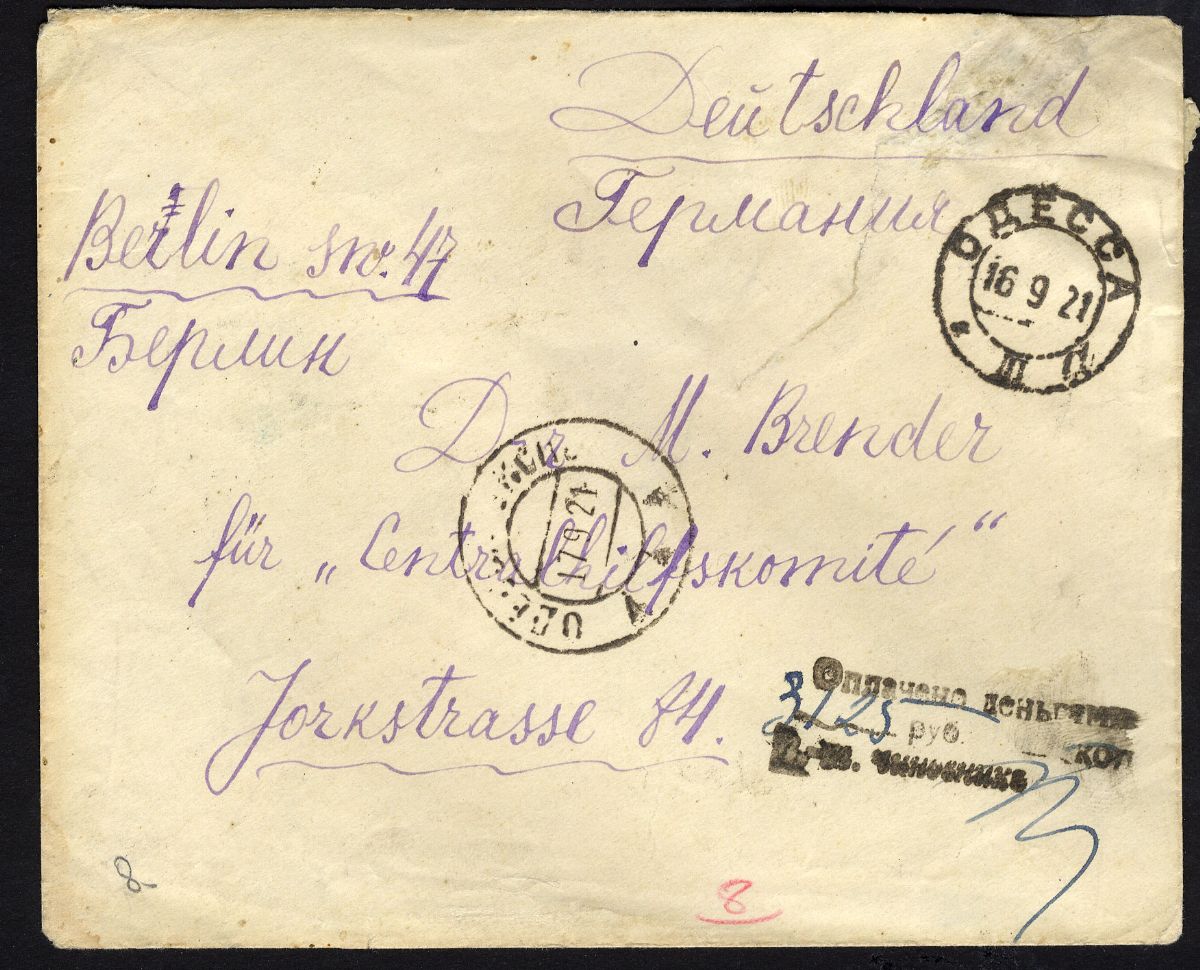 Deutschland
Германия
Berlin sw. 47
Берлин
ОДЕССА
16 9 21
Dr M. Brender
17 9 21
für „Centralhilfskomité“
Jorkstrasse 84.
Оплачено деньгами
3125 руб. коп
чиновника
8
8